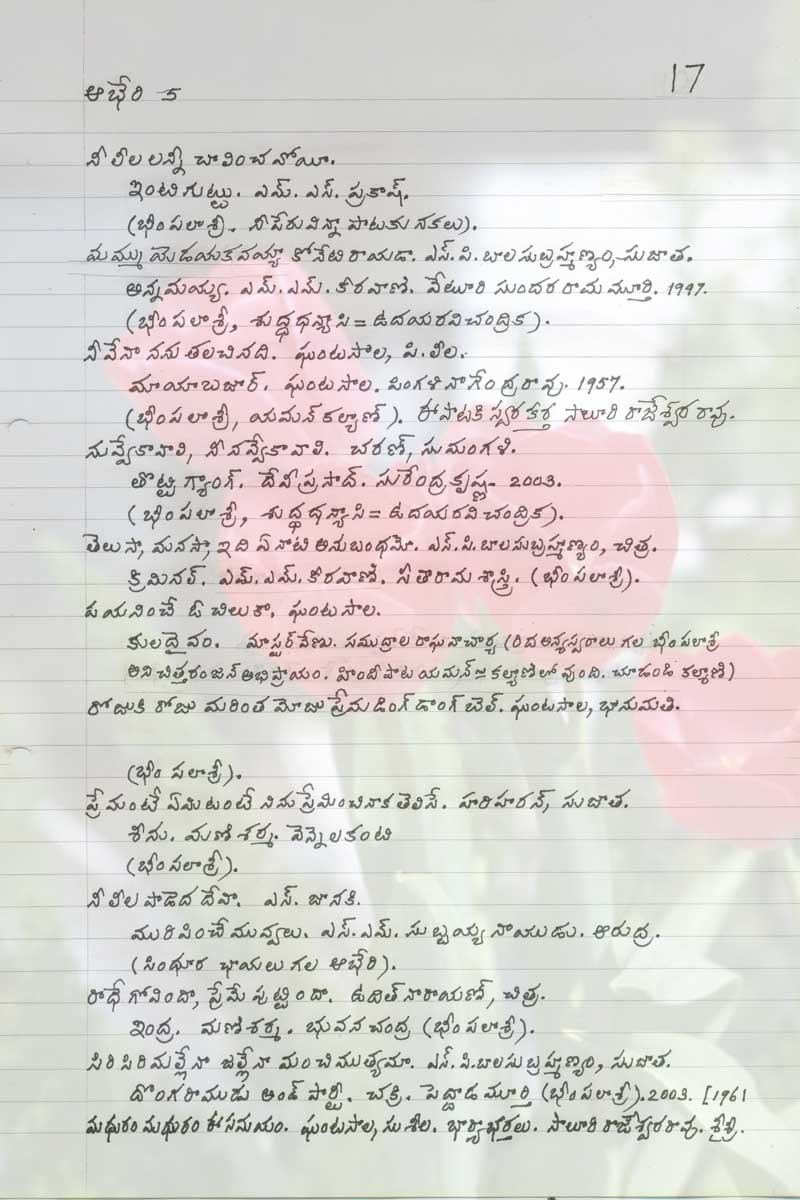 ఆభేరి 5
17
నీ లీలలన్నీ చూపించవోయీ.
ఇంటిగుట్టు. ఎమ్. ఎస్. ప్రకాష్.
(భీంపలాశ్రీ. నీపేరువిన్నా పాటకు నకలు).
మమ్ము యెడయకవయ్యా కోనేటి రాయడా. ఎస్. పి. బాలసుబ్రహ్మణ్యం, సుజాత.
అన్నమయ్య. ఎమ్. ఎమ్. కీరవాణి. వేటూరి సుందరరామమూర్తి. 1997.
(భీంపలాశ్రీ, శుద్ధధన్యాసి = ఉదయరవిచంద్రిక).
నీవేనా నను తలచినది. ఘంటసాల, పి. లీల.
మాయాబజార్. ఘంటసాల. పింగళి నాగేంద్రరావు. 1957.
(భీంపలాశ్రీ, యమన్ కల్యాణ్). ఈపాటకి స్వరకర్త సాలూరి రాజేశ్వరరావు.
నువ్వేకావాలి, నీ నవ్వేకావాలి. చరణ్, సుమంగళి.
తొట్టి గ్యాంగ్. దేవీప్రసాద్. సురేంద్రకృష్ణ. 2003.
(భీంపలాశ్రీ, శుద్ధధన్యాసి = ఉదయరవిచంద్రిక).
తెలుసా, మనసా, ఇది ఏనాటి అనుబంధమో. ఎస్. పి. బాలసుబ్రహ్మణ్యం, చిత్ర.
క్రిమినల్. ఎమ్. ఎమ్. కీరవాణి. సీతారామశాస్త్రి. (భీంపలాశ్రీ).
పయనించే ఓ చిలుకా. ఘంటసాల.
కులదైవం. మాస్టర్ వేణు. సముద్రాల రాఘవాచార్య (రి ద అన్యస్వరాలు గల భీంపలాశ్రీ
అని చిత్తరంజన్ అభిప్రాయం. హిందీపాట యమన్ = కల్యాణిలో వుంది. చూడండి కల్యాణి)
రోజుకి రోజు మరింత మోజు ప్రేమ డింగ్ డాంగ్ బెల్. ఘంటసాల, భానుమతి.
(భీంపలాశ్రీ).
ప్రేమంటే ఏమిటంటే నిను ప్రేమించినాక తెలిసే. హరిహరన్, సుజాత.
శీను. మణిశర్మ. వెన్నెలకంటి
(భీంపలాశ్రీ).
నీ లీల పాడెద దేవా. ఎస్. జానకి.
మురిపించే మువ్వలు. ఎస్. ఎమ్. సుబ్బయ్య నాయుడు. ఆరుద్ర.
(సింధూర ఛాయలు గల ఆభేరి).
రాధే గోవిందా, ప్రేమే పుట్టిందా. ఉదిత్ నారాయణ్, చిత్ర.
ఇంద్ర. మణిశర్మ. భువనచంద్ర (భీంపలాశ్రీ).
సిరిసిరిమల్లేనా జల్లేనా మంచిముత్యమా. ఎస్. పి. బాలసుబ్రహ్మణ్యం, సుజాత.
దొంగరాముడు అండ్ పార్టీ. చక్రి. పెద్దాడ మూర్తి (భీంపలాశ్రీ). 2003. [1961
మధురం మధురం ఈ సమయం. ఘంటసాల, సుశీల. భార్యాభర్తలు. సాలూరి రాజేశ్వరరావు. శ్రీశ్రీ.